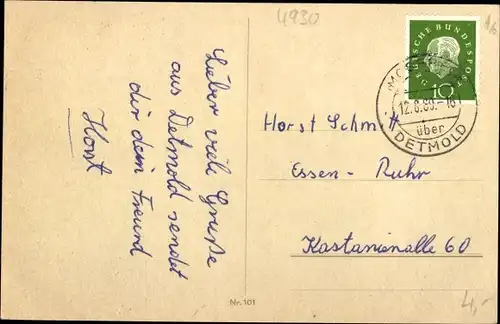 4930
Lieber viele Grüße
aus Detmold sendet
dir dein Freund
Horst
DEUTSCHE BUNDESPOST
10
12.8.60.-16
über
DETMOLD
Horst Schmitt
Essen-Ruhr
Kastanienalle 60
Nr. 101
4,-